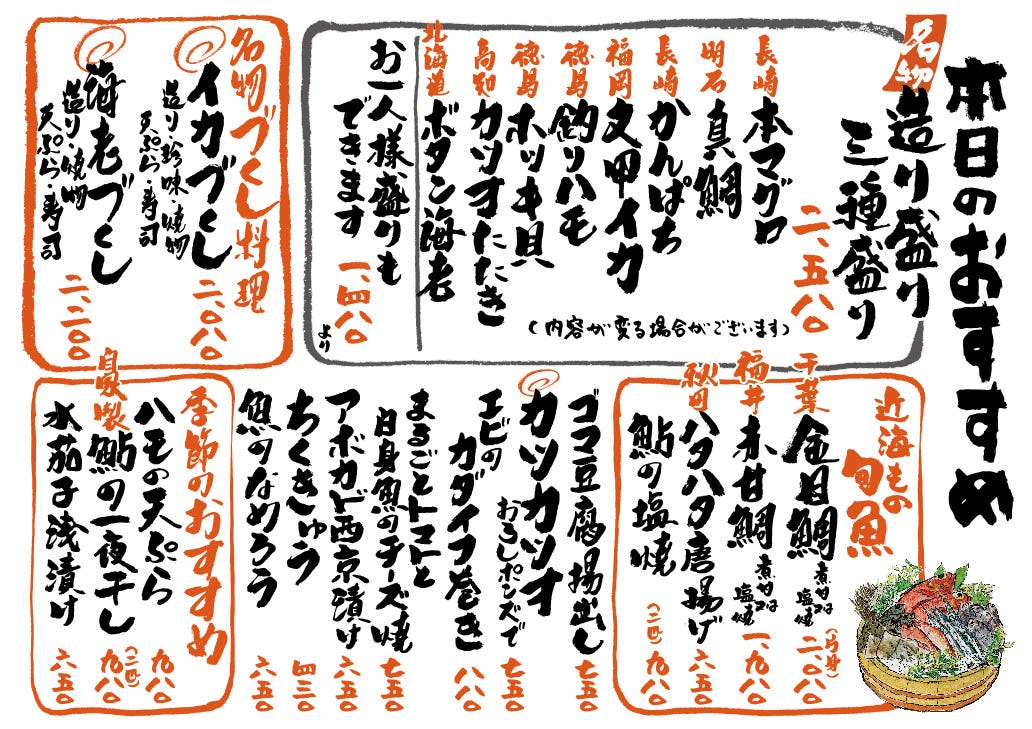 本日のおすすめ
名物
造り盛り
三種盛り
二、五八〇
長崎 本マグロ
明石 真鯛
長崎 かんぱち
福岡 文甲イカ
徳島 釣りハモ
徳島 ホッキ貝
高知 カツオたたき
北海道 ボタン海老
(内容が変る場合がございます)
お一人様盛りも
できます
一、四八〇
より
名物づくし料理
イカづくし
造り・珍味・焼物
天ぷら・寿司
二、〇八〇
海老づくし
造り・焼物
天ぷら・寿司
二、二〇〇
近海もの
旬魚
千葉 金目鯛 煮付又は
塩焼
(片身)
二、〇八〇
福井 赤甘鯛 煮付又は
塩焼
一、九八〇
秋田 ハタハタ唐揚げ 六五〇
鮎の塩焼 (二匹) 九八〇
ゴマ豆腐揚出し 七五〇
カツカツオ
おろしポンズで 七五〇
エビの
カダイフ巻き 八八〇
まるごとトマトと
白身魚のチーズ焼 七五〇
アボカド西京漬け 六五〇
ちくきゅう 四三〇
魚のなめろう 六五〇
季節のおすすめ
ハモの天ぷら 九八〇
自家製 鮎の一夜干し (二匹) 九八〇
水茄子浅漬け 六五〇